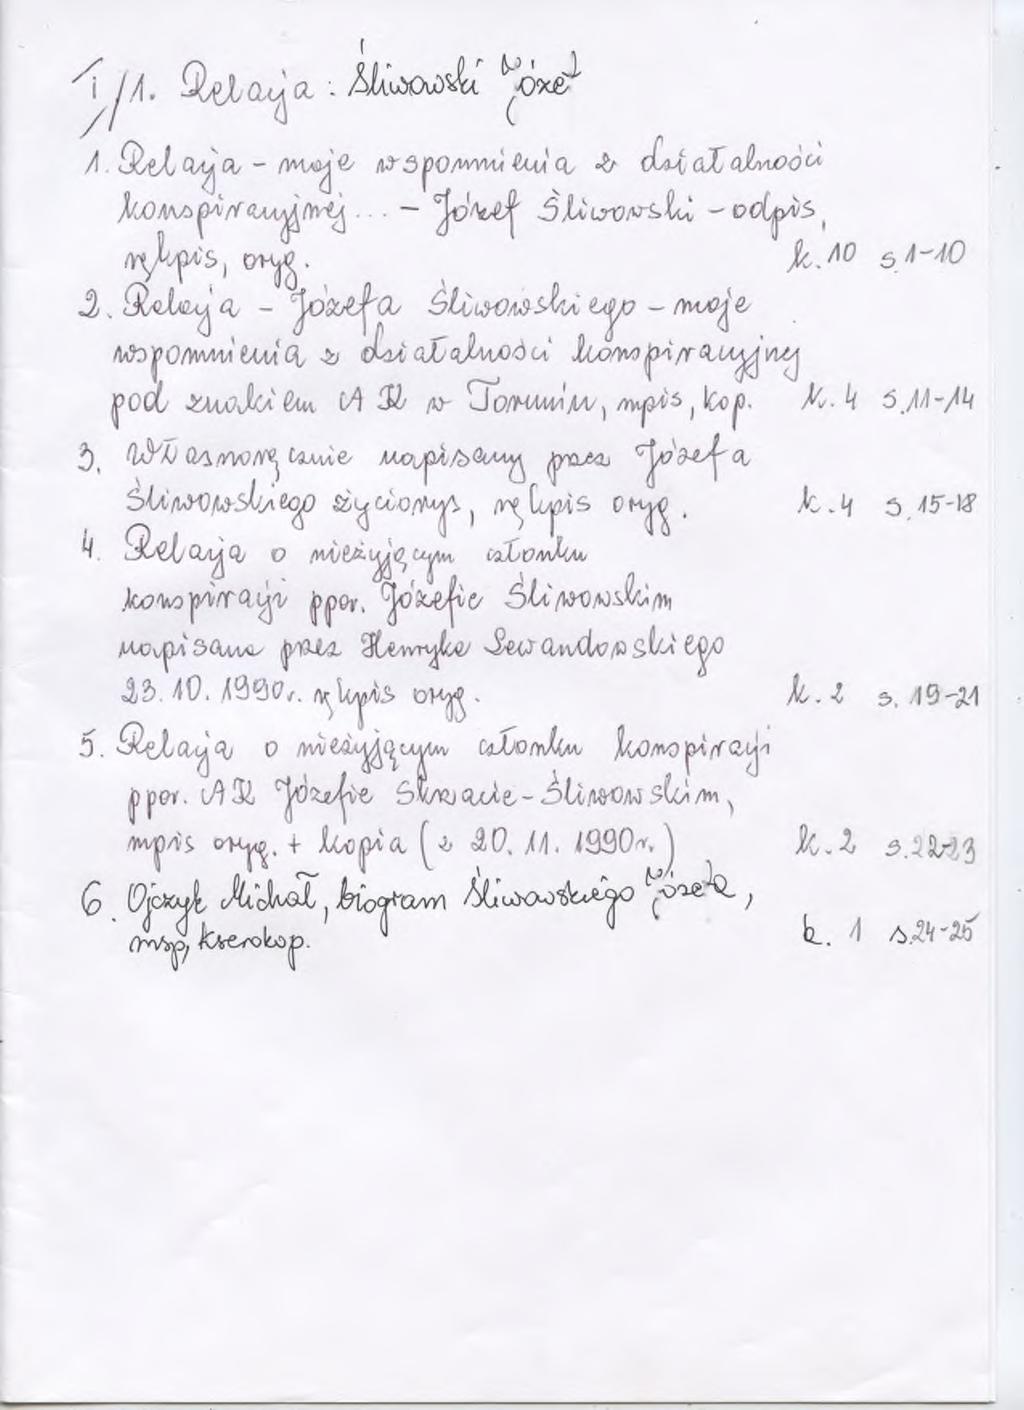 I/1. Relacja: Śliwowski Józef
1. Relacja - moje wspomnienia z działalności
konspiracyjnej... - Józef Śliwowski - odpis,
rękpis, oryg. k. 10 s. 1-10
2. Relacja - Józefa Śliwowskiego - moje
wspomnienia z działalności konspiracyjnej
pod znakiem AK w Toruniu, mpis, kop. k. 4 s. 11-14
3. Własnoręcznie napisany przez Józefa
Śliwowskiego życiorys, rękpis oryg. k. 4 s. 15-18
4. Relacja o nieżyjącym członku
konspiracji ppor. Józefie Śliwowskim
napisana przez Henryka Lewandowskiego
23.10.1990r. rękpis oryg. k. 2 s. 19-21
5. Relacja o nieżyjącym członku konspiracji
ppor. AK Józefie Skwacie-Śliwowskim,
mpis oryg. + kopia (z 20.11.1990r.) k. 2 s. 22-23
6. Ojczyk Michał, biogram Śliwowskiego Józefa,
msp, kserokop. k. 1 s. 24-25